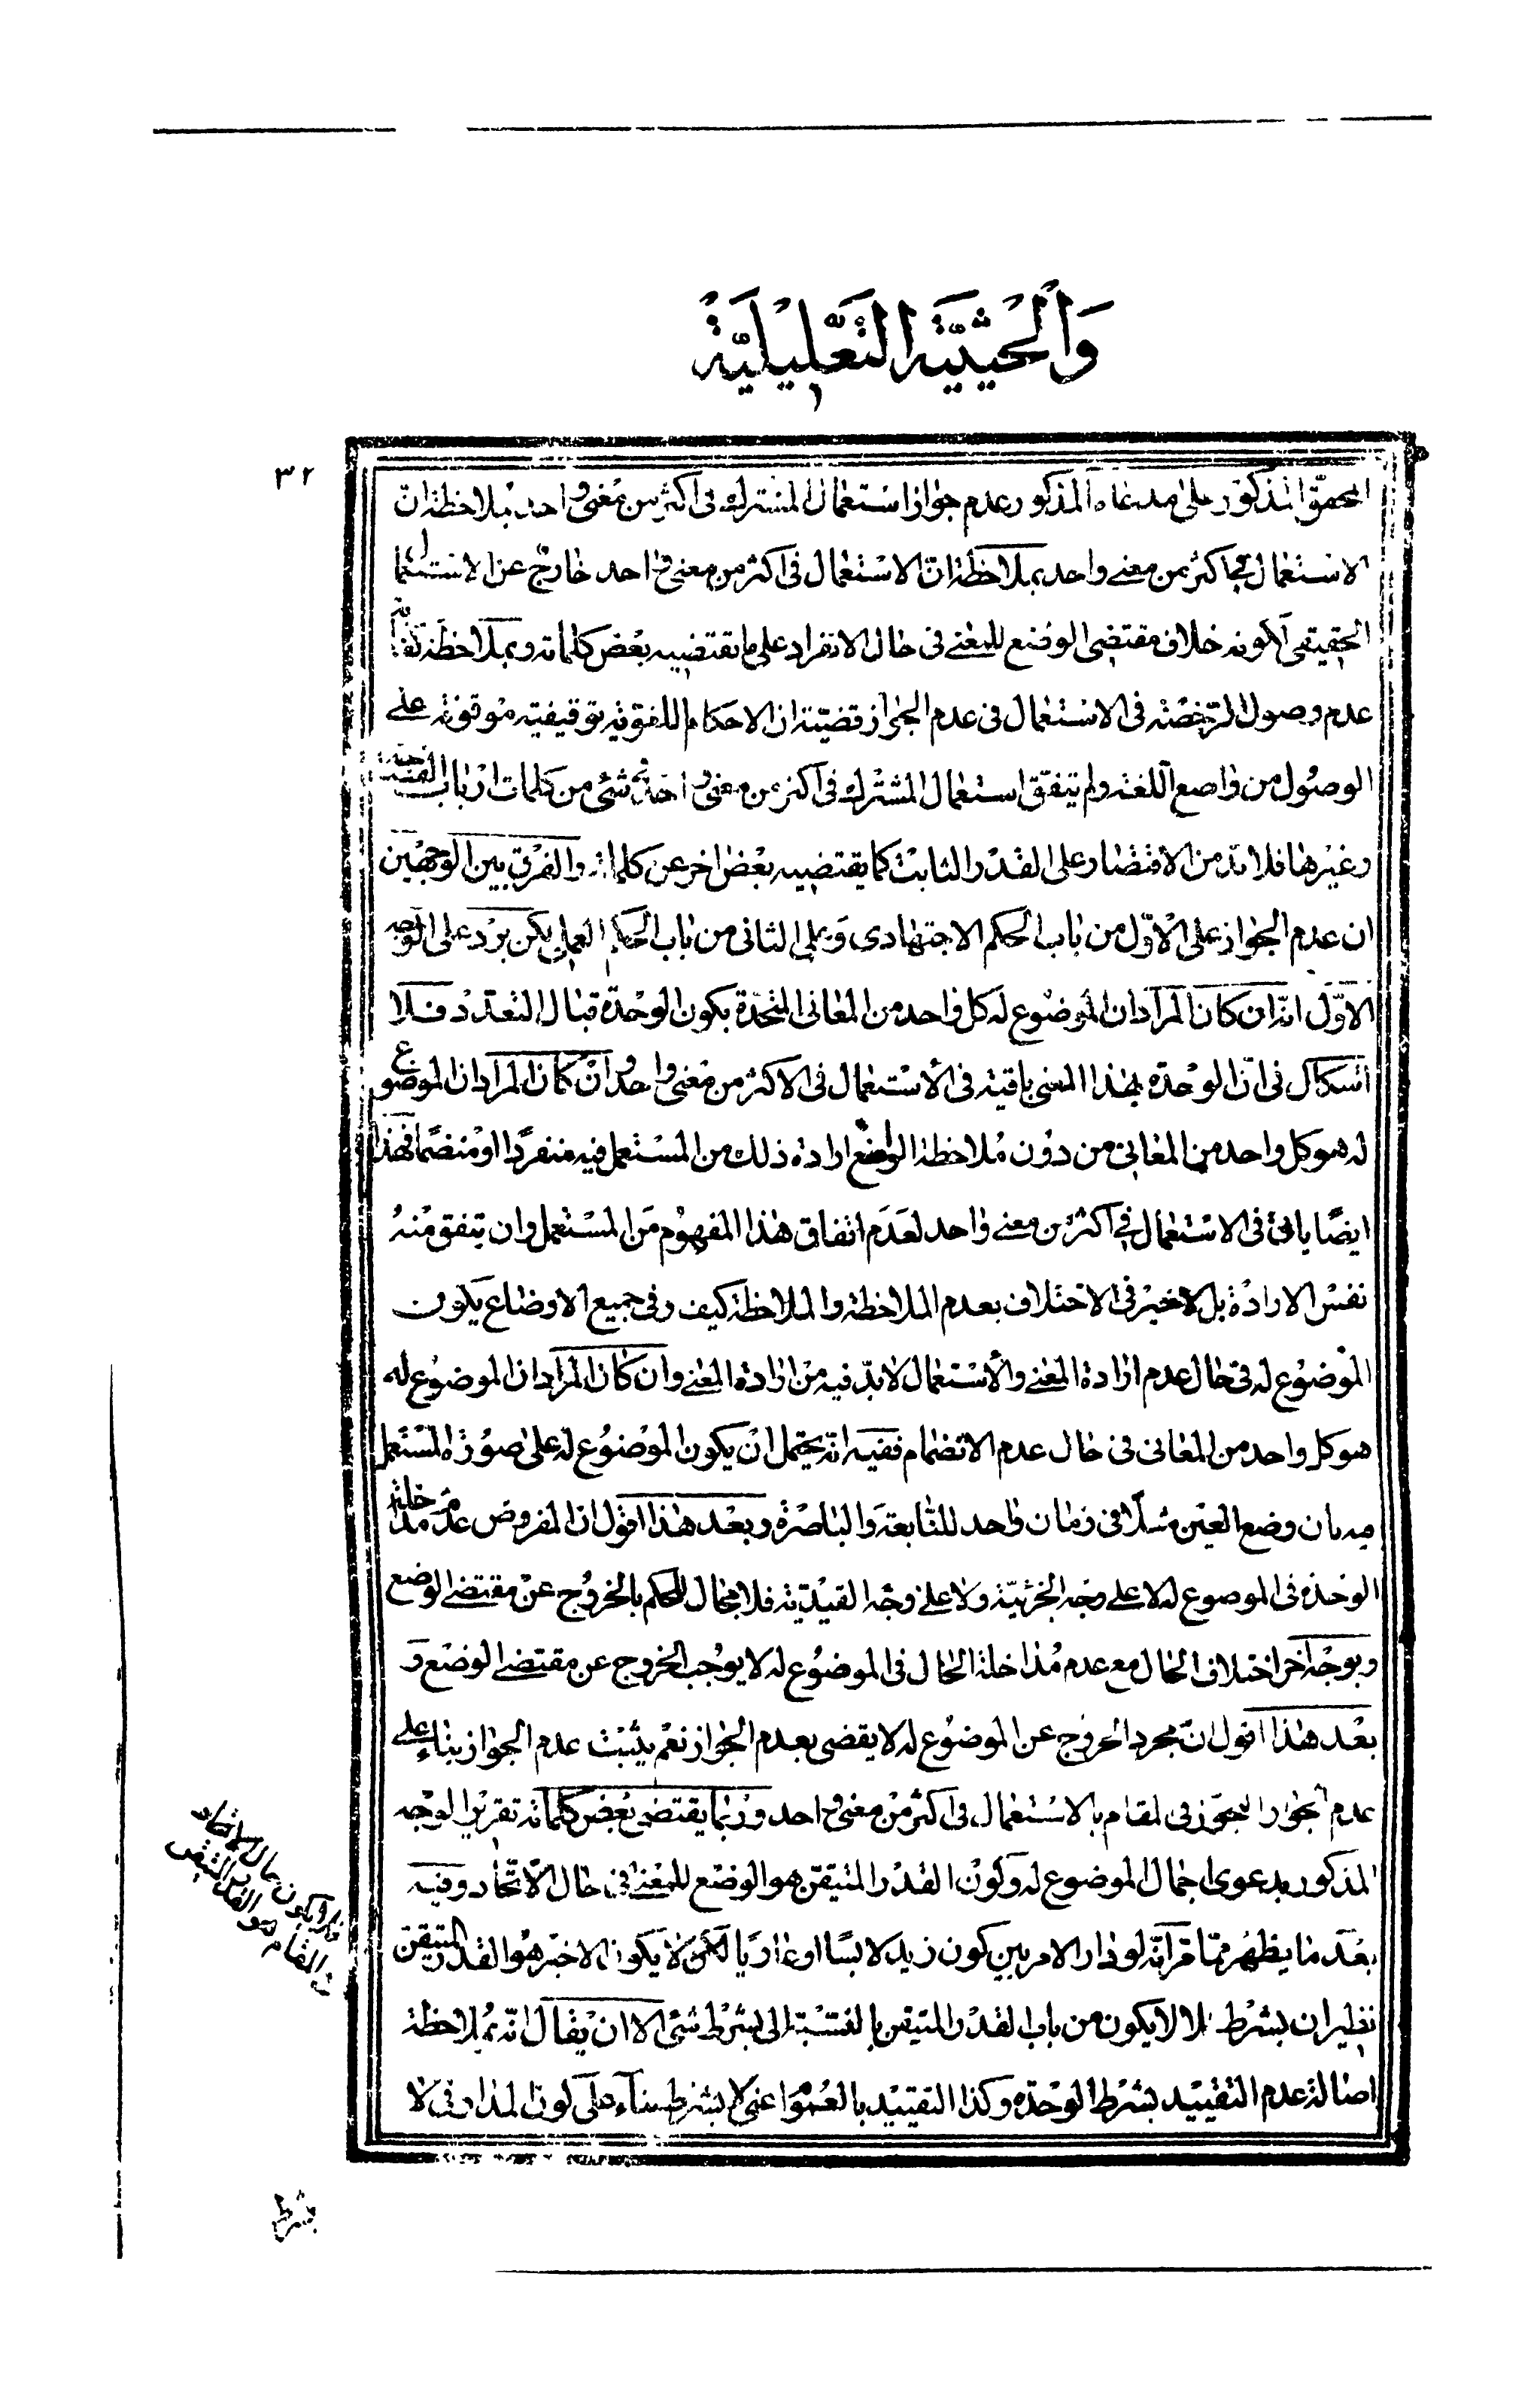 وَالْحَيْثِيَّةِ التَّعْلِيلِيَّةِ
٣٢
المحقق المذكور على مدعاه المذكور عدم جواز استعمال المشترك فى اكثر من معنى واحد بملاحظة ان
الاستعمال فى اكثر من معنى واحد بملاحظة انّ الاستعمال فى اكثر من معنى واحد خارج عن الاستعمال
الحقيقى لكونه خلاف مقتضى الوضع للمعنى فى حال الانفراد على ما يقتضيه بعض كلماته وبملاحظة
عدم وصول الرّخصة فى الاستعمال فى عدم الجواز قضيّة ان الاحكام اللغوية توقيفية موقوفة على
الوصول من واضع اللغة ولم يتفق استعمال المشترك فى اكثر من معنى واحد فى شئ من كلمات ارباب
وغيرها فلا بدّ من الاقتصار على القدر الثابت كما يقتضيه بعض اخر عن كلماته والفرق بين الوجهين
ان عدم الجواز على الاوّل من باب الحكم الاجتهادى وعلى الثانى من باب الحكم العملى لكن يرد على الوجه
الاوّل انّه ان كان المراد ان الموضوع له كل واحد من المعانى المتّحدة بكون الوحدة قبال التعدّد فلا
اشكال فى انّ الوحدة بهذا المعنى باقية فى الاستعمال فى الاكثر من معنى واحد وان كان المراد ان الموضوع
له هو كل واحد من المعانى من دون ملاحظة الواضع ارادة ذلك من المستعمل فيه منفردًا او منضمًا فهذا
ايضًا باق فى الاستعمال فى اكثر من معنى واحد لعدم اتفاق هذا المفهوم من المستعمل وان يتفق منه
نفس الارادة بل الاخير فى الاختلاف بعدم الملاحظة والملاحظة كيف وفى جميع الاوضاع يكون
الموضوع له فى حال عدم ارادة المعنى والاستعمال لابدّ فيه من ارادة المعنى وان كان المراد ان الموضوع له
هو كل واحد من المعانى فى حال عدم الانضمام ففيه انّه يحتمل ان يكون الموضوع له على صورة المستعمل
فيه بان وضع العين مثلًا فى زمان واحد للنّابعة والباصرة وبعد هذا اقول ان المفروض عدم مداخلة
الوحدة فى الموضوع له لا على وجه الجزئيّة ولا على وجه القيديّة فلا مجال للحكم بالخروج عن مقتضى الوضع
وبوجه اخر اختلاف الحال مع عدم مداخلة الحال فى الموضوع له لا يوجب الخروج عن مقتضى الوضع و
بعد هذا اقول انّ مجرد الخروج عن الموضوع له لا يقضى بعدم الجواز نعم يثبت عدم الجواز بناء على
عدم الجواز التجوّز فى المقام بالاستعمال فى اكثر من معنى واحد وربما يقتضى بعض كلماته تقرير الوجه
المذكور بدعوى اجمال الموضوع له وكون القدر المتيقن هو الوضع للمعنى فى حال الاتّحاد وفيه
بعد ما يظهر ممّا مرّ انّه لو دار الامر بين كون زيد لابسًا او عاريًا لا يكون الاخير هو القدر المتيقن
نظير ان بشرط لا لا يكون من باب القدر المتيقن بالنسبة الى بشرط شئ الا ان يقال انّه بملاحظة
اصالة عدم التقييد بشرط الوحدة وكذا التقييد بالعموم اعنى لا بشرط بناء على كون المدار فى لا
بشرط